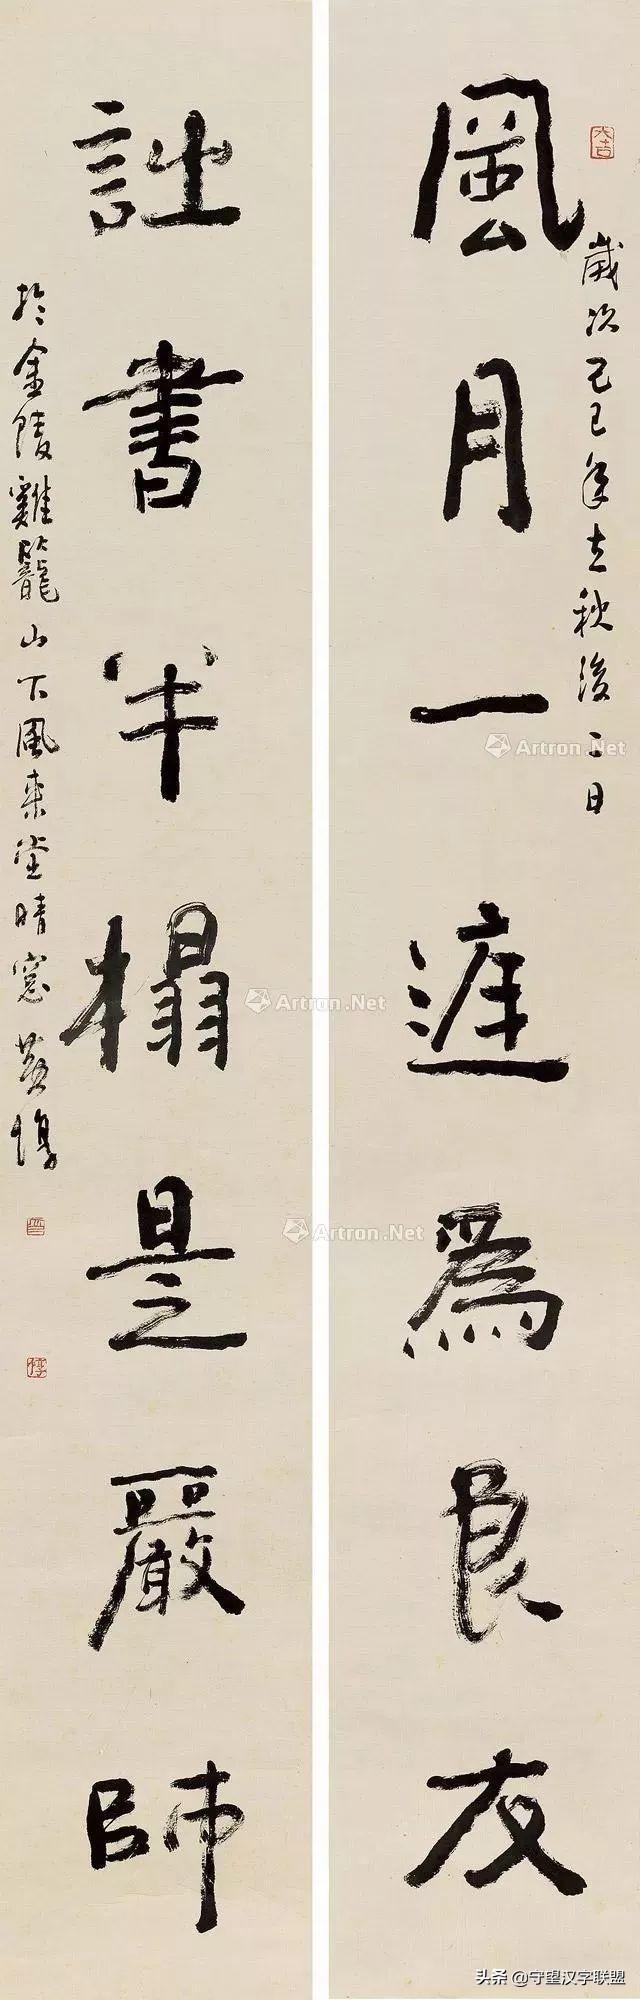 大吉
歲次己巳年立秋後二日
風月一庭為良友
詩書半榻是嚴師
於金陵雞籠山下風來堂晴窓黃惇
惇
Artron.Net
Artron.Net
Artron.Net
头条 @守望汉字联盟